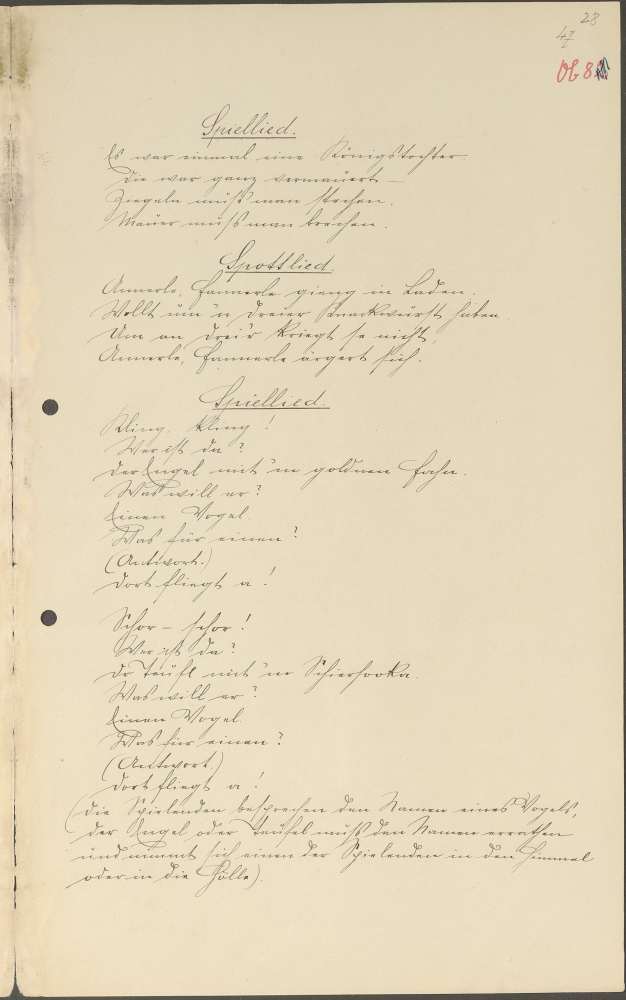 28
47
Ob 8
Spiellied.
Es war einmal eine Königstochter
Die war ganz vermauert –
Ziegeln muß man stechen.
Mauer muß man brechen.
Spottlied.
Annerle, Hannerle gieng in Laden.
Wollt um 'n Dreier Knackwürst haben.
Um an Dreier kriegt se nicht,
Annerle, Hannerle ärgert sich.
Spiellied.
Kling, kling!
Wer ist da?
Der Engel mit 'n goldnen
Was will er?
Einen Vogel.
Was für einen?
(Antwort.)
Dort fliegt a!
Schor – schor!
Wer ist da?
Dr Teufl mit 'ner
Was will er?
Einen Vogel.
Was für einen?
(Antwort.)
Dort fliegt a!
(Die Spielenden besprechen den Namen eines Vogels,
der Engel oder Teufel muß den Namen errathen
und nimmt sich einen der Spielenden in den Himmel
oder in die Hölle).